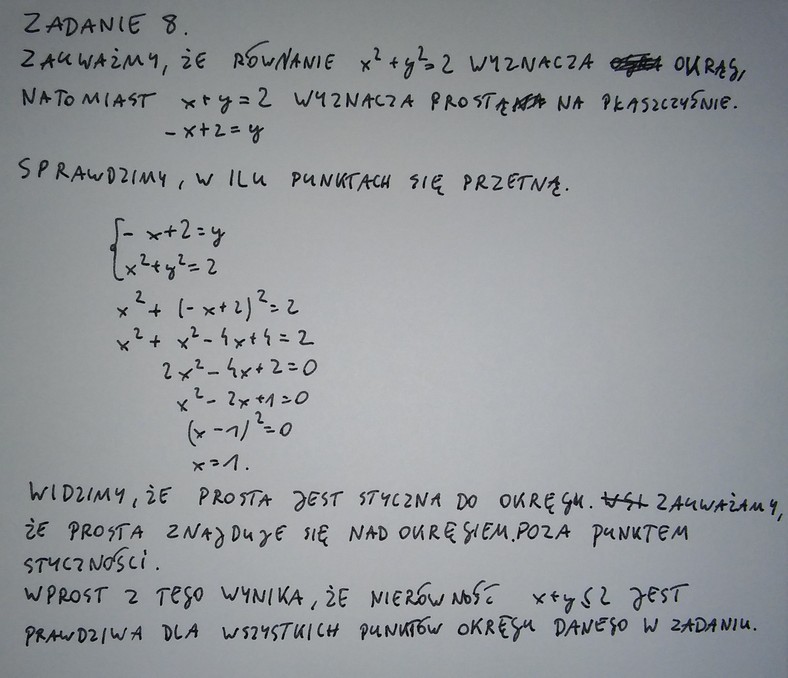 ZADANIE 8.
ZAUWAŻMY, ŻE RÓWNANIE x²+y²=2 WYZNACZA OKRĄG,
NATOMIAST x+y=2 WYZNACZA PROSTĄ NA PŁASZCZYŹNIE.
-x+2=y
SPRAWDZIMY, W ILU PUNKTACH SIĘ PRZETNĄ.
{-x+2=y
x²+y²=2
x²+(-x+2)²=2
x²+x²-4x+4=2
2x²-4x+2=0
x²-2x+1=0
(x-1)²=0
x=1.
WIDZIMY, ŻE PROSTA JEST STYCZNA DO OKRĘGU. ZAUWAŻAMY,
ŻE PROSTA ZNAJDUJE SIĘ NAD OKRĘGIEM, POZA PUNKTEM
STYCZNOŚCI.
WPROST Z TEGO WYNIKA, ŻE NIERÓWNOŚĆ x+y≤2 JEST
PRAWDZIWA DLA WSZYSTKICH PUNKTÓW OKRĘGU DANEGO W ZADANIU.